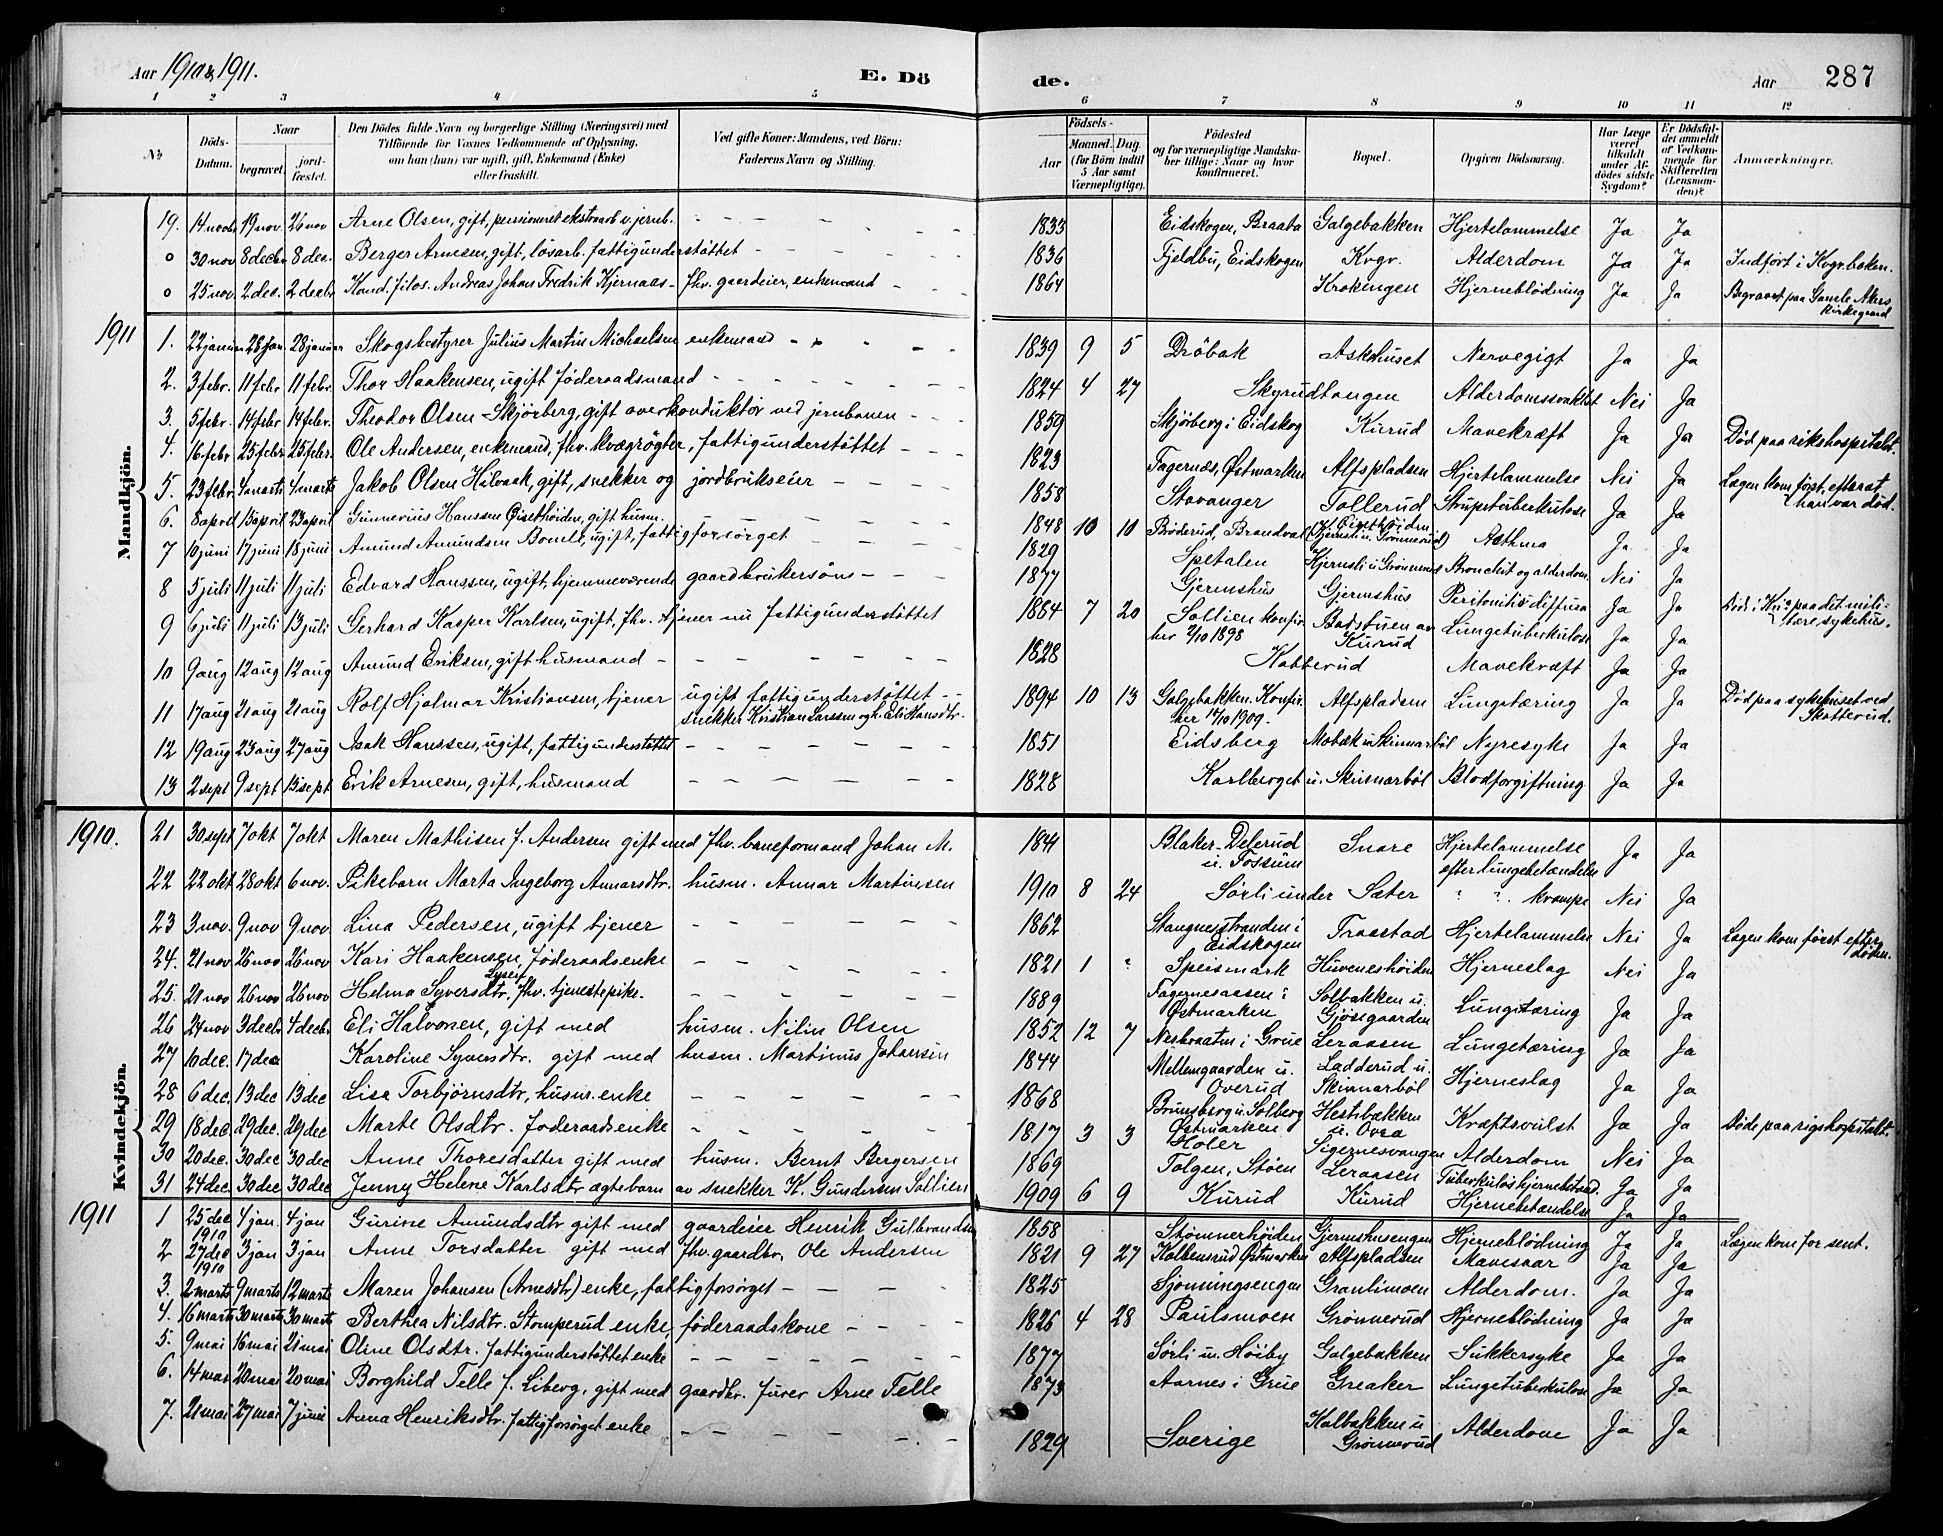 Aar 1910 & 1911. E. Dö de. Aar 287
1 2 3 4 5 6 7 8 9 10 11 12
No. Döds-Datum. Naar begravet. jord-fæstet. Den Dödes fulde Navn og borgerlige Stilling (Næringsvei) med Tilföiende for Voxnes Vedkommende af Oplysning, om han (hun) var ugift, gift, Enkemand (Enke) eller fraskilt. Ved gifte Koner: Mandens, ved Börn: Faderens Navn og Stilling. Födsels- Aar Maaned. Dag. (for Börn indtil 5 Aar samt Værnepligtige). Födested og for værnepligtige Mandska-ber tillige: Naar og hvor konfirmeret. Bopæl. Opgiven Dödsaarsag. Har Læge været tilkaldt under Af-dödes sidste Sygdom? Er Dödsfal-det anmeldt af Vedkom-mende for Skifteretten (Lensman-den)? Anmærkninger.
Mandkjön.
19. 14 novbr 19 nov. 26 nov Arne Olsen, gift, pensioneret ekstraarb v. jernb. 1833 Eidskogen, Braata Galgebakken Hjertelammelse Ja Ja
o 30 nov 8 decbr 8 dec. Berger Arnesen, gift, lösarb. fattigunderstöttet 1836 Fjeldbu, Eidskogen Kvgr. Alderdom Ja Ja Indført i Kvgr. boken.
o 25 nov. 2 dec. 2 decbr Kand. filos. Andreas Johan Fredrik Kjernaas fhv. gaardeier, enkemand 1864 Krokingen Hjerneblödning Ja Ja Begravet paa Gamle Akers kirkegaard
1911
1. 22 januar 28 jan. 28 januar Skogbestyrer Julius Martin Michaelsen enkemand 1839 9 5 Dröbak Askhuset Nervegigt Ja Ja
2. 3 febr. 11 febr 11 febr. Thor Haakensen, ugift föderaadsmand 1824 4 27 Skyrudtangen Alderdomssvakhet Nei Ja
3. 5 febr. 14 febr 14 febr. Theodor Olsen Skjörberg, gift overkonduktör ved jernbanen 1859 Skjörberg i Eidskog Kurud Mavekræft Ja Ja Död paa rikshospitalet.
4. 16 febr 25 febr 25 febr. Ole Andersen, enkemand, fhv. kvægrögter, fattigunderstöttet 1823 Fagernæs, Østmarken Alfspladsen Hjertelammelse Nei Ja Lægen kom först, efterat han var död.
5. 23 febr. 4 marts 4 marts Jakob Olsen Hilvaak, gift, snekker og jordbrukseier 1858 Stavanger Tollerud Strupetuberkulose Ja Ja
6. 8 april 15 april 23 april Gunnerius Hanssen Øisethöiden, gift husm. 1848 10 10 Bröderud, Brandval Øisethöiden (Gjermsli u. Grönnerud) Asthma Ja Ja
7 10 juni 17 juni 18 juni Amund Amundsen Bomli, ugift, fattigforsörget 1829 Spetalen Hjernsli u Grönnerud Bronchit og alderdom. Nei Ja
8 5 juli 11 juli 11 juli Edvard Hanssen, ugift, hjemmeværende gaardbrukersön 1877 Gjermshus Gjermshus Peritonitis diffusa Ja Ja
9 6 juli 11 juli 13 juli Gerhard Kasper Karlsen, ugift, fhv. tjener nu fattigunderstöttet 1884 7 20 Sollien konfir. her 2/10 1898 Badstuen av Kurud Lungetuberkulose Ja Ja Död i Kr.a paa det mili-tære sykehus.
10 9 aug 12 aug 12 aug Amund Eriksen, gift husmand 1828 Kobberud Mavekræft Ja Ja
11 17 aug 21 aug 21 aug Rolf Hjalmar Kristiansen, tjener ugift fattigunderstöttet snekker Kristian Larssen og h. Eli Hansdtr. 1894 10 13 Galgebakken. Konfir. her 17/10 1909. Alfspladsen Lungetæring Ja Ja Död paa sykehuset ved Skotterud.
12 19 aug 23 aug 27 aug Isak Hanssen, ugift, fattigunderstöttet 1851 Eidsberg Mobæk u Skinnarböl Nyresyke Ja Ja
13 2 sept 9 sept 13 sept Erik Arnesen, gift, husmand 1828 Karlberget u. Skinnarböl Blodforgiftning Ja Ja
Kvindekjön.
1910.
21 30 sept 7 okt 7 okt Maren Mathisen f. Andersen gift med fhv. baneformand Johan M. 1844 Blaker. Delerud u. Fossum Snare Hjertelammelse efter lungebetændelse Ja Ja
22 22 okt 28 okt 6 nov. Pikebarn Marta Ingeborg Annarsdtr. husm. Annar Martinsen 1910 8 24 Sörli under Sæter " " krampe Nei Ja
23 3 nov. 9 nov 9 nov. Lina Pedersen, ugift tjener 1862 Stangnesstranden i Eidskogen Traastad Hjertelammelse Nei Ja Lægen kom först efter döden.
24. 21 nov 26 nov 26 nov Kari Haakensen, föderaadsenke 1821 1 " Speismark Huveneshöiden Hjerneslag Nei Ja
25. 21 nov 26 nov 26 nov Helma Syversdtr. fhv. tjenestepike. 1889 Fagernesaasen i Østmarken Solbakken u. Gjösegaarden Lungetæring Ja Ja
26 24 nov 3 decbr 4 decbr. Eli Halvonen, gift med husm. Nilin Olsen 1852 12 7 Nesbraaten i Grue Leraasen Lungetæring Ja Ja
27 10 dec. 17 dec Karoline Syversdtr. gift med husm. Martinus Johansen 1844 Mellemgaarden u. Overud Ladderud u. Skinnarböl Hjerneslag Ja Ja
28 6 dec. 13 dec 13 dec Lisa Torbjörnsdtr, husm. enke 1868 Brunsberg u. Solberg Østmarken Hestebækken u. Overa Kræftsvulst Ja Ja Döde paa rigshospitalet.
29 18 dec 29 dec. 29 dec Marte Olsdtr. föderaadsenke 1817 3 3 Holer Sigernesvangen Alderdom Nei Ja
30 20 dec. 30 dec 30 dec Anne Thoresdatter gift med husm. Bernt Bergersen 1869 Tolgen, Stöen Leraasen Tuberkulös hjernebetænd. Ja Ja
31 24 dec. 30 dec 30 dec Jenny Helene Karlsdtr ægtebarn av snekker K. Gundersen Sollien 1909 6 9 Kurud Kurud Hjernebetændelse Ja Ja
1911
1 25 dec 1910 4 jan. 4 jan Gurine Amundsdtr gift med gaardeier Henrik Gulbrandsen 1858 Stömnerhöiden Gjermshusengen Hjerneblödning Ja Ja Lægen kom for sent.
2 27 dec 1910 3 jan 3 jan Anne Torsdatter gift med fhv. gaardbr. Ole Andersen 1821 9 27 Kolbensrud Østmarken Alfspladsen Mavesaar Ja Ja
3. 2 marts 9 marts 12 marts Maren Johansen (Arnesdtr) enke, fattigforsörget 1825 Sjonningsengen Granlimoen Alderdom. Ja Ja
4. 16 marts 30 marts 30 marts Berthea Nilsdtr. Stomperud enke, föderaadskone 1826 4 28 Paulsmoen Grönnerud Hjerneblödning Ja Ja
5. 9 mai 16 mai 21 mai Oline Olsdtr. fattigunderstöttet enke 1877 Sörli u. Höiby Galgebakken Sukkersyke Ja Ja
6. 14 mai 20 mai 20 mai Borghild Telle f. Liberg, gift med gaardbr. furer Arne Telle 1873 Aarnes i Grue Greaker Lungetuberkulose Ja Ja
7. 21 mai 27 mai 7 juni Anna Henriksdtr. fattigforsörget enke 1829 Sverige Kolbakken u Grönnerud Alderdom Ja Ja